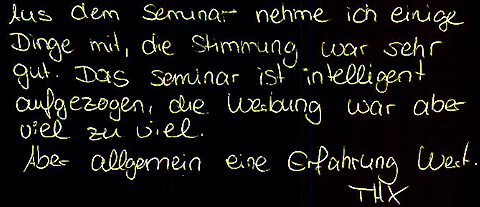 Aus dem Seminar nehme ich einige
Dinge mit, die Stimmung war sehr
gut. Das Seminar ist intelligent
aufgezogen, die Werbung war aber
viel zu viel.
Aber allgemein eine Erfahrung Wert.
THX